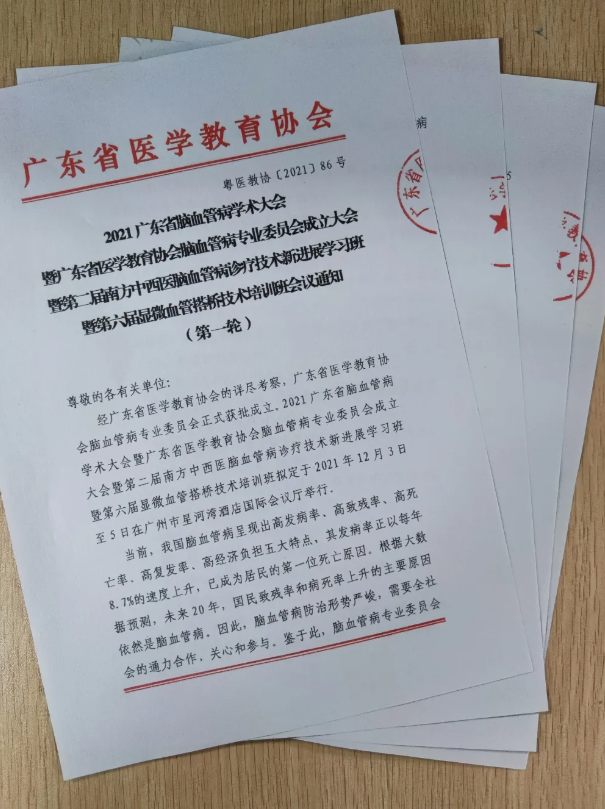 广东省医学教育协会
粤医教协〔2021〕86 号
2021 广东省脑血管病学术大会
暨广东省医学教育协会脑血管病专业委员会成立大会
暨第二届南方中西医脑血管病诊疗技术新进展学习班
暨第六届显微血管搭桥技术培训班会议通知
（第一轮）
尊敬的各有关单位：
经广东省医学教育协会的详尽考察，广东省医学教育协
会脑血管病专业委员会正式获批成立。2021 广东省脑血管病
学术大会暨广东省医学教育协会脑血管病专业委员会成立
大会暨第二届南方中西医脑血管病诊疗技术新进展学习班
暨第六届显微血管搭桥技术培训班拟定于 2021 年 12 月 3 日
至 5 日在广州市星河湾酒店国际会议厅举行。
当前，我国脑血管病呈现出高发病率、高致残率、高死
亡率、高复发率、高经济负担五大特点，其发病率正以每年
8.7%的速度上升，已成为居民的第一位死亡原因。根据大数
据预测，未来 20 年，国民致残率和病死率上升的主要原因
依然是脑血管病。因此，脑血管病防治形势严峻，需要全社
会的通力合作，关心和参与。鉴于此，脑血管病专业委员会
病
广东省
5